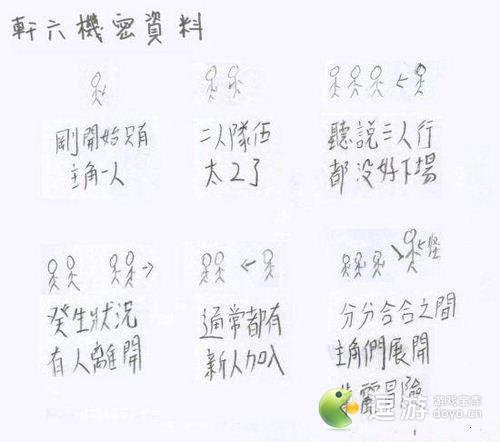 軒六機密資料
剛開始只有
主角一人
二人隊伍
太2了
聽說三人行
都没好下場
發生狀況
有人離開
通常都有
新人加入
怪
分分合合之間
主角們展開
冒險
逗游 游戏宝库
doyo.cn